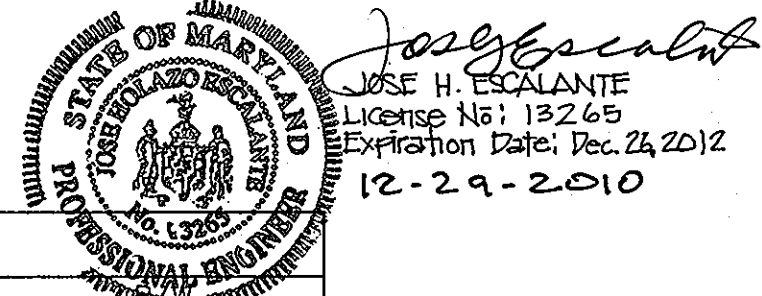 STATE OF MARYLAND
JOSE HOLAZO ESCALANTE
No. 13265
PROFESSIONAL ENGINEER
JosHEscalante
JOSE H. ESCALANTE
License No: 13265
Expiration Date: Dec. 26, 2012
12-29-2010